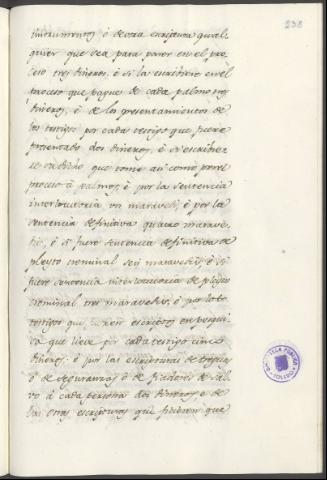 238
instrumentos, ó de otra escriptura qual
quier que sea para poner en el pro
ceso tres dineros, é si la escribiere en el
proceso que pague de cada palmo tres
dineros, é de los presentamientos de
los testigos por cada testigo que fuere
presentado dos dineros, é si escribiere
su dicho que tome asi como por el
proceso á palmos, é por la sentencia
interlocutoria un maravedi, é por la
sentencia definitiva quatro marave
dis, é si fuere sentencia definitiva de
pleyto creminal seis maravedis é si
fuere sentencia interlocutoria de pleyto
creminal tres maravedis, é por los
testigos que fueren escriptos en pesqui
sa que lieve por cada testigo cinco
dineros: é por las escripturas de treguas
ó de seguranzas ó de fiadores de sal
vo á cada persona dos dineros é de
las otras escripturas que ficieren que
BIBLIOTECA PUBLICA
TOLEDO